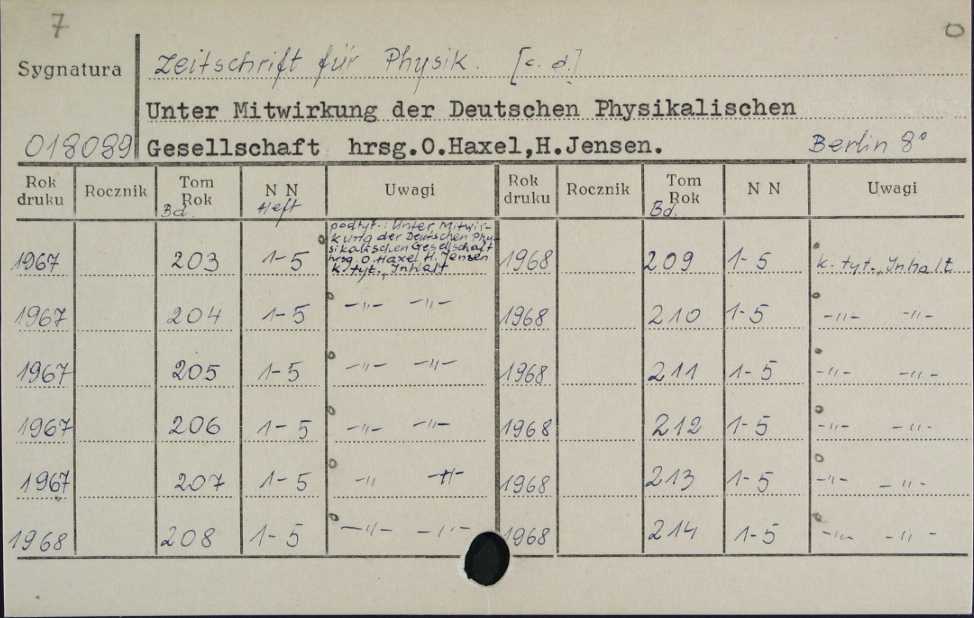 7 0
Sygnatura Zeitschrift für Physik. [c. d.]
Unter Mitwirkung der Deutschen Physikalischen
018089 Gesellschaft hrsg.O.Haxel,H.Jensen. Berlin 8°
Rok druku Rocznik Tom Rok Bd. N N Heft Uwagi Rok druku Rocznik Tom Rok Bd. N N Uwagi
podtyt.: Unter Mitwir-
kung der Deutschen Phy-
sikalischen Gesellschaft
hrsg. O. Haxel H. Jensen
1967 203 1-5 k. tyt., Inhalt 1968 209 1-5 k. tyt., Inhalt
1967 204 1-5 -"- -"- 1968 210 1-5 -"- -"-
1967 205 1-5 -"- -"- 1968 211 1-5 -"- -"-
1967 206 1-5 -"- -"- 1968 212 1-5 -"- -"-
1967 207 1-5 -"- -"- 1968 213 1-5 -"- -"-
1968 208 1-5 -"- -"- 1968 214 1-5 -"- -"-